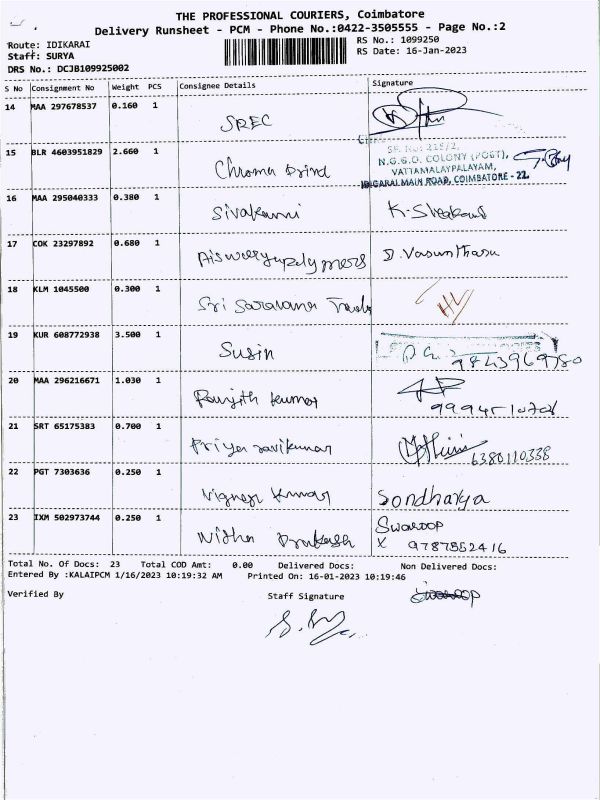 THE PROFESSIONAL COURIERS, Coimbatore
Delivery Runsheet - PCM - Phone No.:0422-3505555 - Page No.:2
Route: IDIKARAI
RS No.: 1099250
Staff: SURYA
RS Date: 16-Jan-2023
DRS No.: DCJB109925002
S No Consignment No Weight PCS Consignee Details Signature
14 MAA 297678537 0.160 1 SREC
15 BLR 4603951829 2.660 1 Chroma Print
SF. No: 218/2,
N.G.G.O. COLONY (POST),
VATTAMALAYPALAYAM,
IDIGARAI MAIN ROAD, COIMBATORE - 22.
16 MAA 295040333 0.380 1 Sivakami
17 COK 23297892 0.680 1 Aiswarya polymers D. Vasunthara
18 KLM 1045500 0.300 1 Sri Saravana
19 KUR 608772938 3.500 1 Susin
9843969780
20 MAA 296216671 1.030 1 Ranjith kumar
21 SRT 65175383 0.700 1 Priya ravikumar 6380110338
22 PGT 7303636 0.250 1 Vignesh kumar Sondharya
23 IXM 502973744 0.250 1 Nitha Prakash Swaroop
X 9787552416
Total No. Of Docs: 23 Total COD Amt: 0.00 Delivered Docs: Non Delivered Docs:
Entered By :KALAIPCM 1/16/2023 10:19:32 AM Printed On: 16-01-2023 10:19:46
Verified By Staff Signature